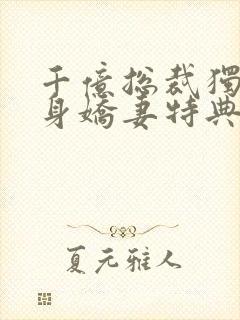 千億總裁獨
身嬌妻特典
夏元雅人